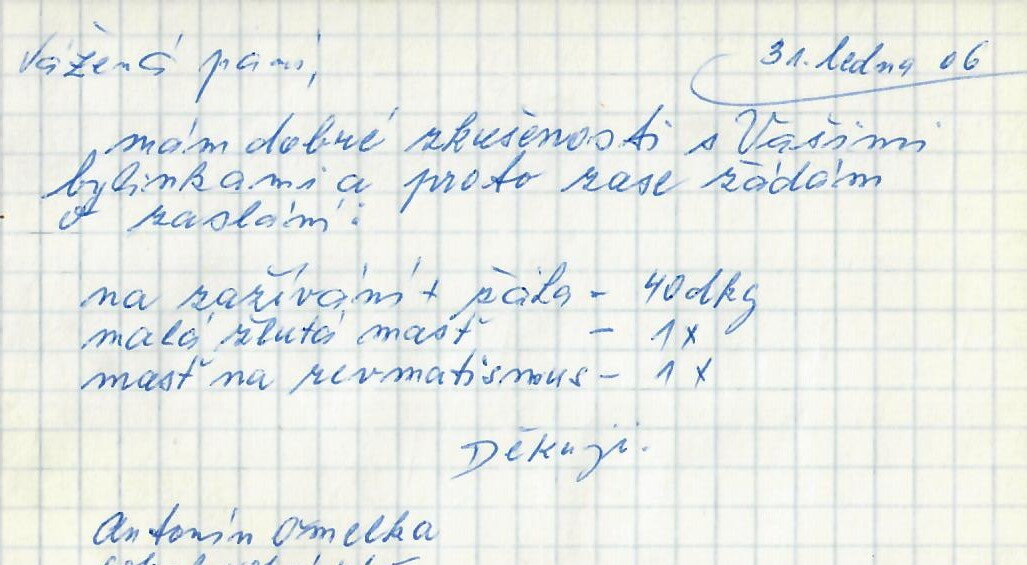 Vážená paní,
31. ledna 06
mám dobré zkušenosti s Vašimi
bylinkami a proto zase žádám
o zaslání:
na zažívání + páta - 40dkg
malá žlutá mast - 1x
mast na revmatismus - 1x
Děkuji.
Antonín Omelka